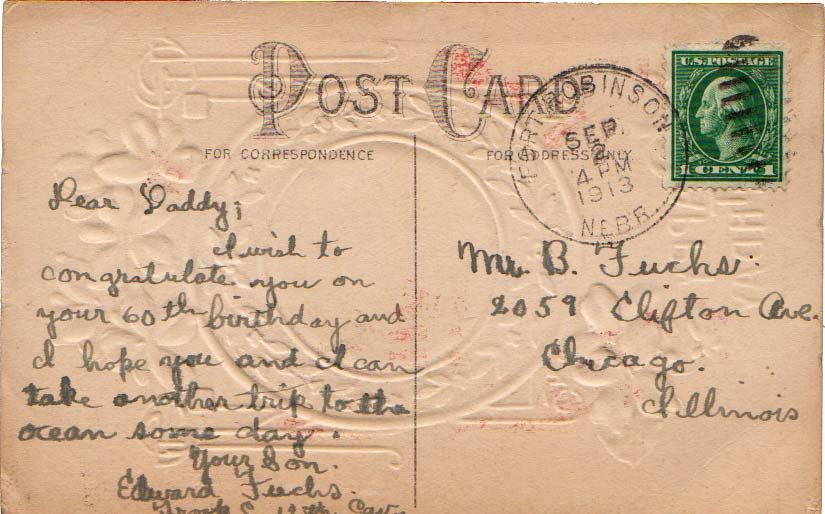 POST CARD
FOR CORRESPONDENCE
FOR ADDRESS ONLY
FORT ROBINSON
SEP.
2
4 PM
1913
NEBR.
U.S. POSTAGE
1 CENT 1
Dear Daddy;
I wish to
congratulate you on
your 60th birthday and
I hope you and I can
take another trip to the
ocean some day.
Your Son.
Edward Fuchs.
Troop 12th. Cav.
Mr. B. Fuchs.
2059 Clifton Ave.
Chicago.
Illinois